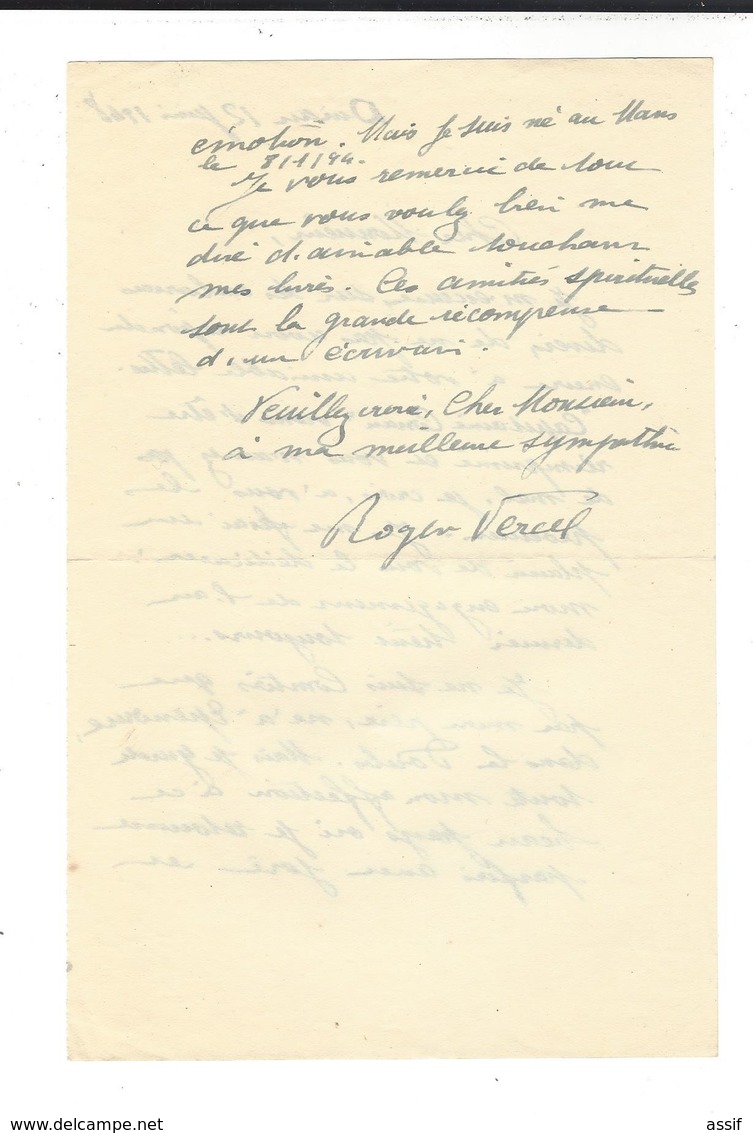 émotion. Mais je suis né au Mans
le 8/1/94.
Je vous remercie de tout
ce que vous voulez bien me
dire d'aimable touchant
mes livres. Ces amitiés spirituelles
sont la grande récompense
d'un écrivain.
Veuillez croire, Cher Monsieur,
à ma meilleure sympathie
Roger Vercel
delcampe.net
assif